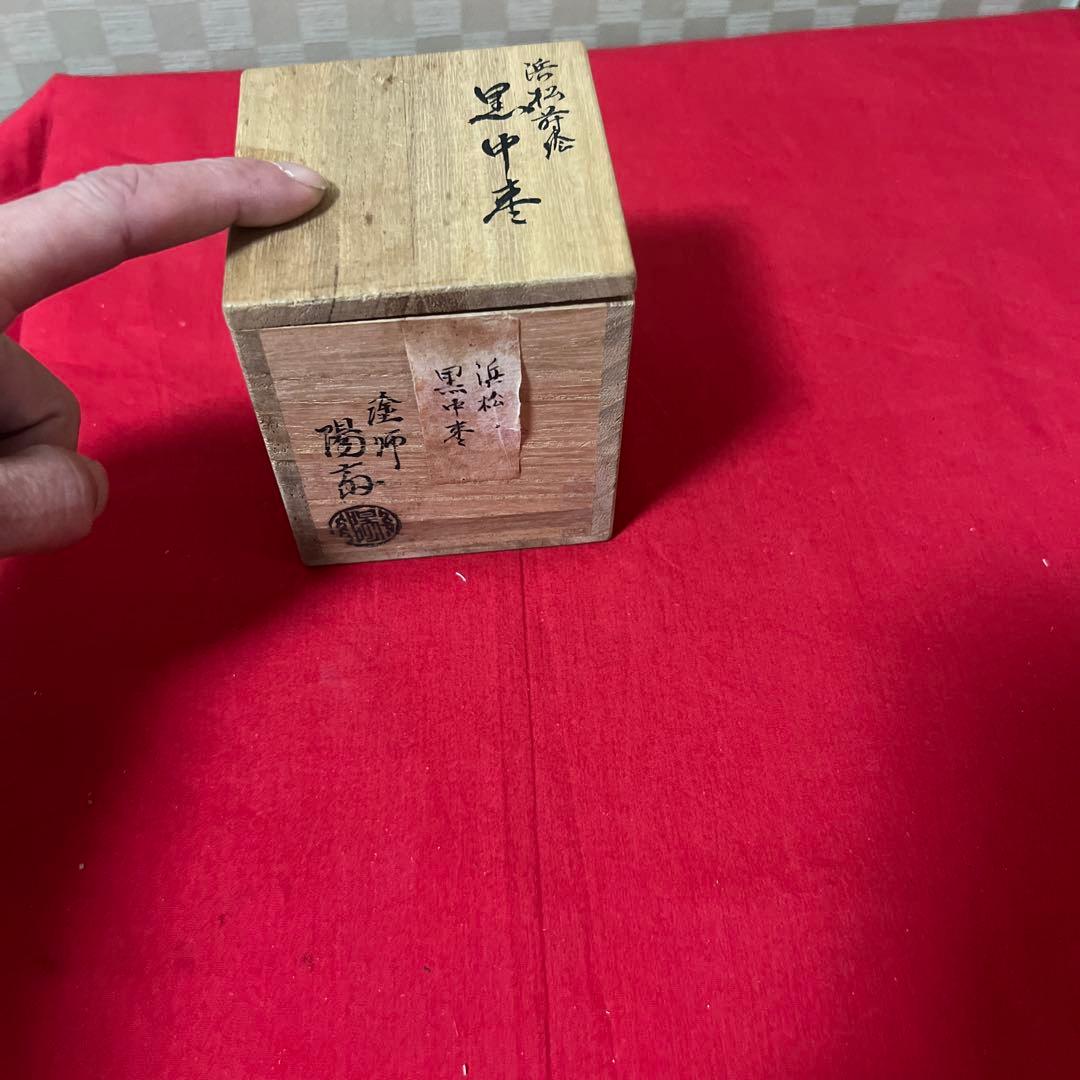 浜松蒔絵
黒中棗
浜松
黒中棗
塗師
陽斎